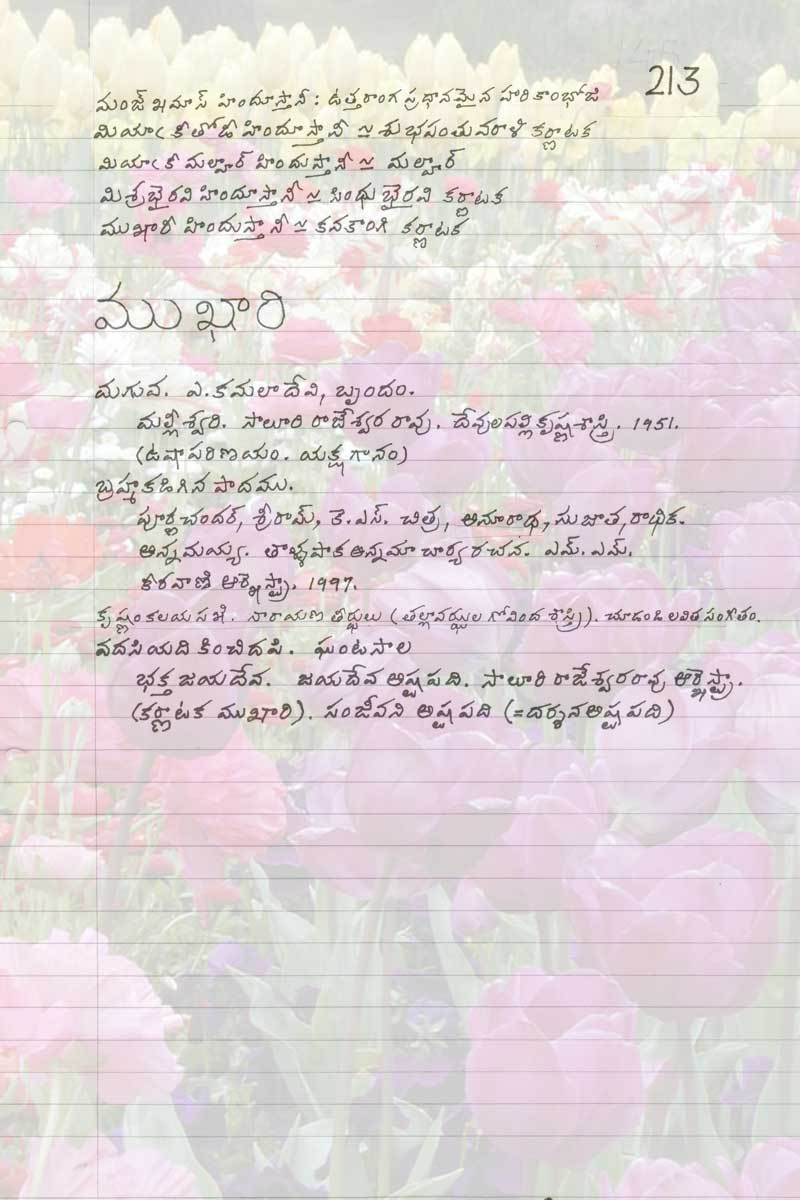 213
మంజ్ ఖమాస్ హిందూస్తానీ : ఉత్తరాంగ ప్రధానమైన హరికాంభోజి
మియాఁ కీ తోడి హిందూస్తానీ ≃ శుభపంతువరాళి కర్ణాటక
మియాఁ కీ మల్హార్ హిందుస్తానీ ≃ మల్హార్
మిశ్రభైరవి హిందూస్తానీ ≃ సింధుభైరవి కర్ణాటక
ముఖారీ హిందుస్తానీ ≃ కనకాంగి కర్ణాటక
ముఖారి
మగువ. ఎ.కమలాదేవి, బృందం.
మల్లీశ్వరి. సాలూరి రాజేశ్వర రావు. దేవులపల్లి కృష్ణశాస్త్రి. 1951.
(ఉషాపరిణయం. యక్షగానం)
బ్రహ్మకడిగిన పాదము.
పూర్ణచందర్, శ్రీరామ్, కె.ఎస్. చిత్ర, ఆనూరాధ, సుజాత, రాధిక.
అన్నమయ్య. తాళ్ళపాక అన్నమాచార్య రచన. ఎమ్. ఎమ్.
కీరవాణి ఆర్కెస్ట్రా. 1997.
కృష్ణం కలయ సఖి. నారాయణ తీర్థులు (తల్లావఝ్ఝుల గోవింద శాస్త్రి). చూడండి లలిత సంగీతం.
వదసియది కించిదపి. ఘంటసాల
భక్త జయదేవ. జయదేవ అష్టపది. సాలూరి రాజేశ్వరరావు ఆర్కెస్ట్రా.
(కర్ణాటక ముఖారి). సంజీవని అష్టపది (=దర్శన అష్టపది)